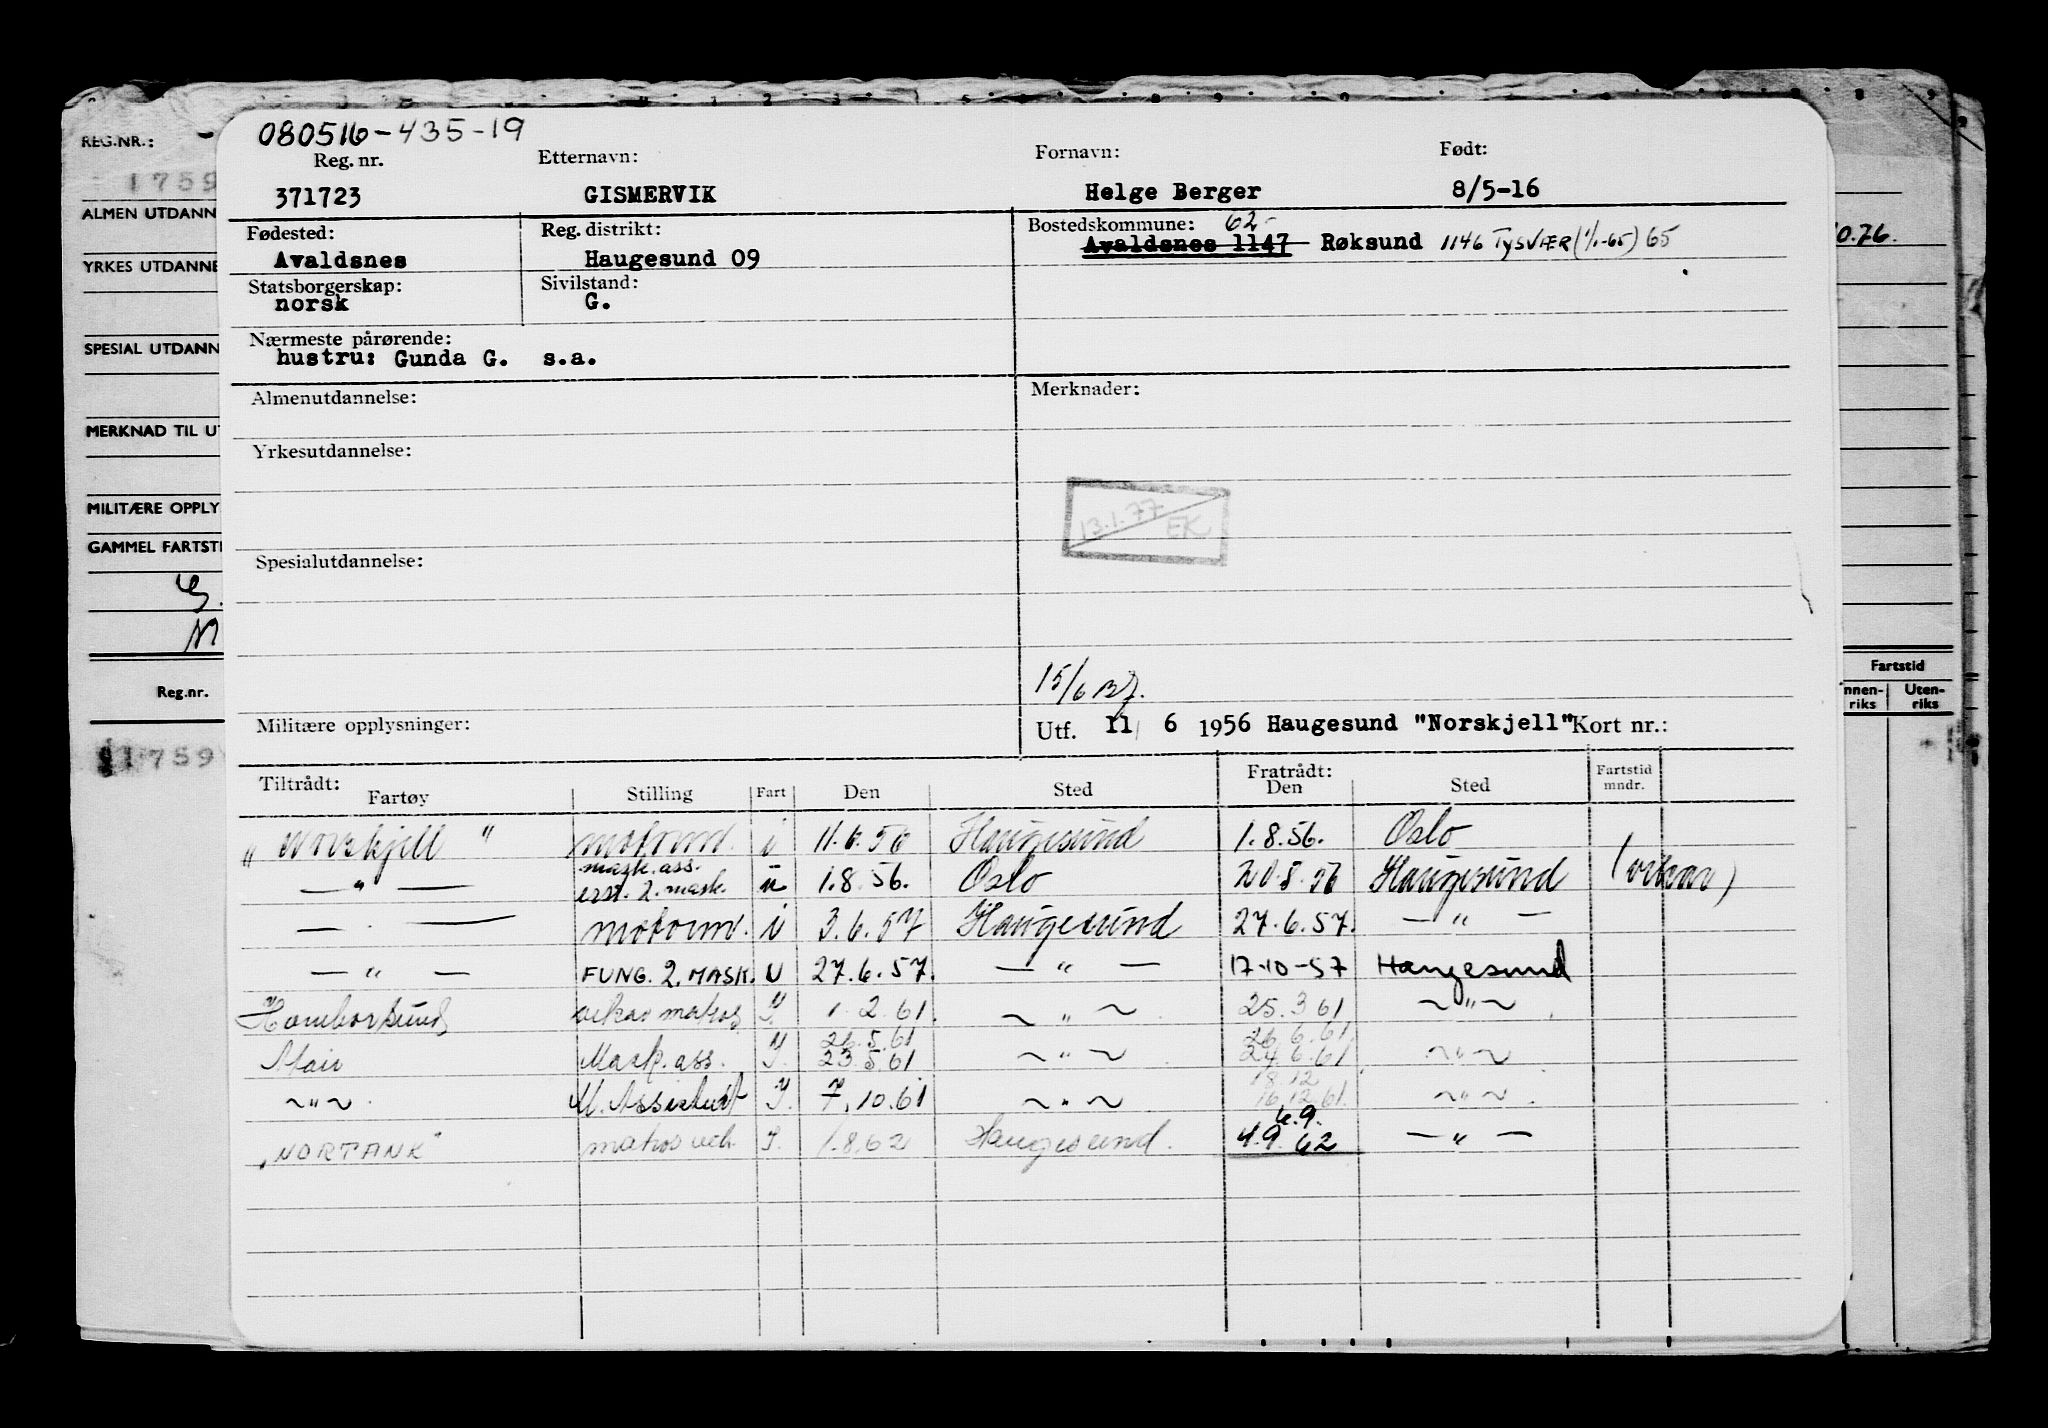 080516-435-19
Reg. nr. Etternavn: Fornavn: Født:
371723 GISMERVIK Helge Berger 8/5-16
Fødested: Reg. distrikt: Bostedskommune: 62
Avaldsnes Haugesund 09 Avaldsnes 1147 Røksund 1146 TYSVÆR (1/1-65) 65
Statsborgerskap: Sivilstand:
norsk G.
Nærmeste pårørende:
hustru: Gunda G. s.a.
Almenutdannelse: Merknader:
Yrkesutdannelse:
13.1.77 EK
Spesialutdannelse:
15/6
Militære opplysninger: Utf. 11 6 1956 Haugesund "Norskjell" Kort nr.:
Tiltrådt: Fratrådt: Fartstid
Fartøy Stilling Fart Den Sted Den Sted mndr.
"Norskjell" motorm. i 11.6.56 Haugesund 1.8.56. Oslo
mask. ass.
— " — erst. 2. mask. u 1.8.56. Oslo 20.8.56 Haugesund (vikar)
— " — motorm. i 3.6.57 Haugesund 27.6.57. — " —
— " — FUNG. 2. MASK. U 27.6.57. — " — 17-10-57 Haugesund
vikar matros 1.2.61. ~ " ~ 25.3.61 ~ " ~
26.5.61 26.6.61
Mask. ass. 23.5.61 ~ " ~ 24.6.61 ~ " ~
18.12
~ " ~ M. Assistent 7.10.61 ~ " ~ 16.12.61. ~ " ~
6.9.
"NORTANK" matros I. 1.8.62 Haugesund. 4.9.62 — " —
REG.NR.:
1759
ALMEN UTDANN
YRKES UTDANNE
SPESIAL UTDANN
MERKNAD TIL UT
MILITÆRE OPPLY
GAMMEL FARTSTI
Reg.nr.
1759
0.76.
Fartstid
nnen-riks Uten-riks